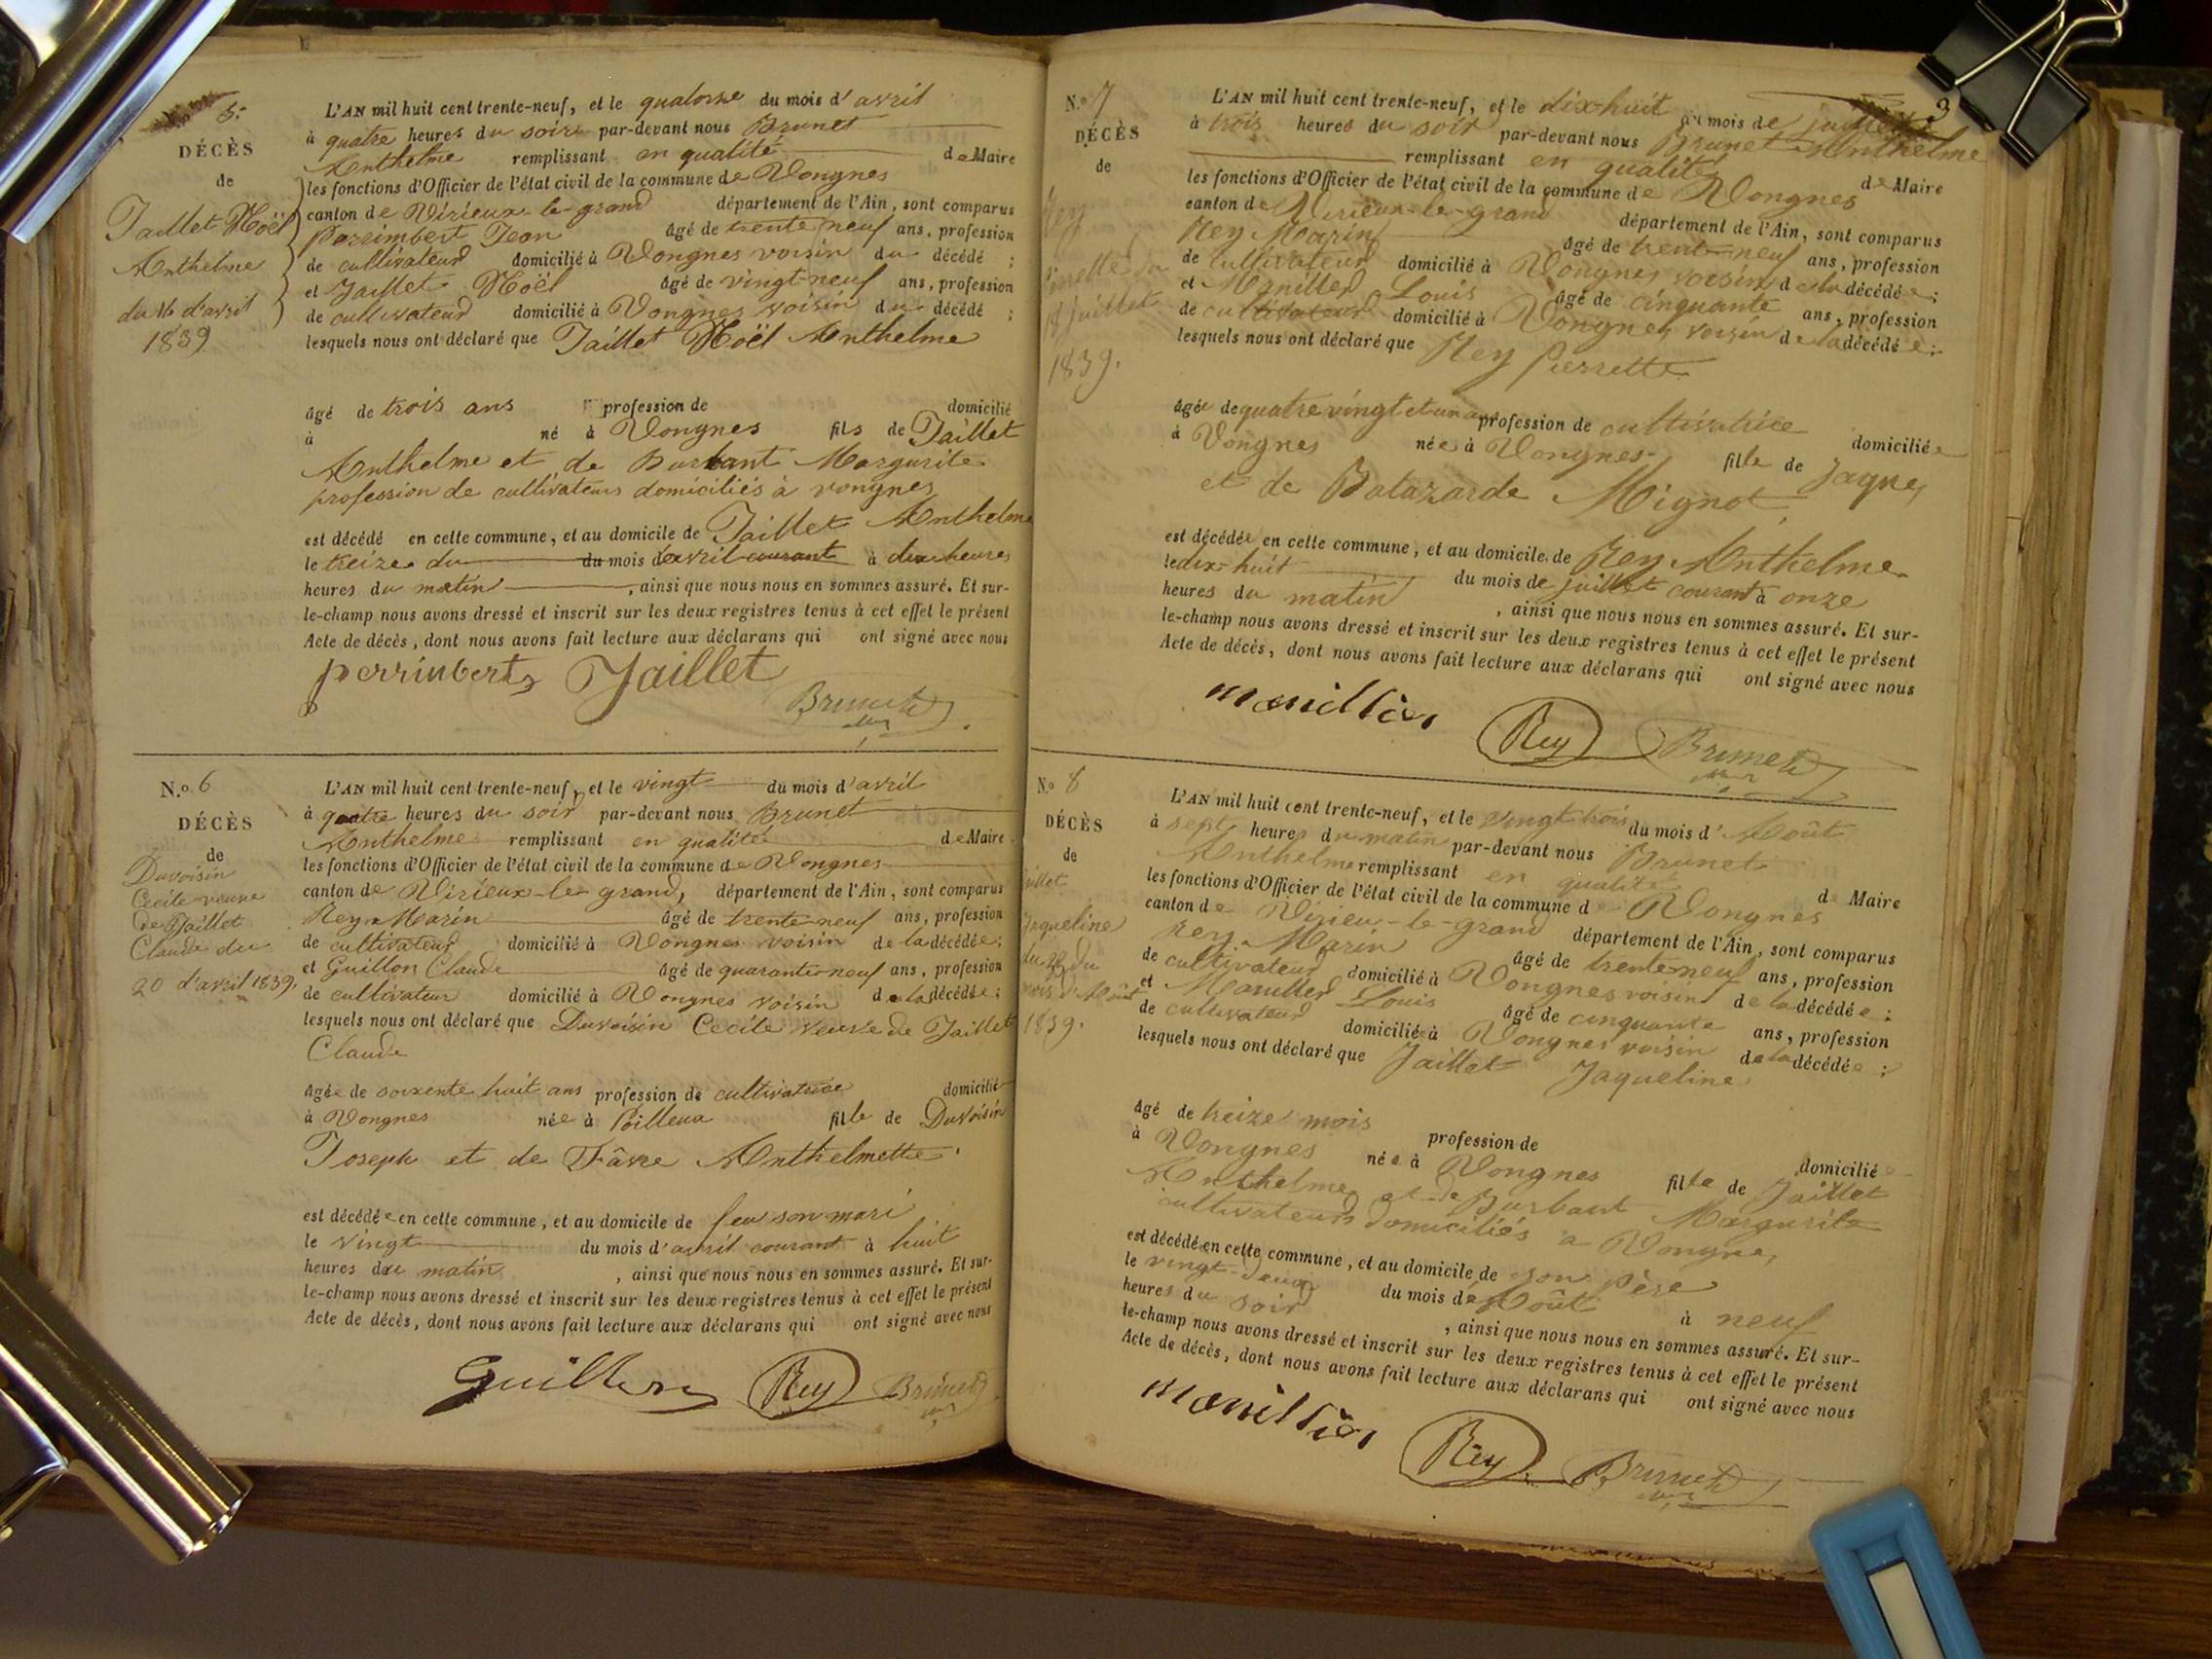 5.
DÉCÈS
de
Jaillet Noël
Anthelme
du 16 d'avril
1839
L'AN mil huit cent trente-neuf, et le quatorze du mois d'avril
à quatre heures du soir par-devant nous Brunet
Anthelme remplissant en qualité de Maire
les fonctions d'Officier de l'état civil de la commune de Vongnes
canton de Virieux-le-grand département de l'Ain, sont comparus
Perrimbert Jean âgé de trente neuf ans, profession
de cultivateur domicilié à Vongnes voisin du décédé ;
et Jaillet Noël âgé de vingt-neuf ans, profession
de cultivateur domicilié à Vongnes voisin du décédé ;
lesquels nous ont déclaré que Jaillet Noël Anthelme
âgé de trois ans profession de domicilié
à né à Vongnes fils de Jaillet
Anthelme et de Burbant Margurite
profession de cultivateurs domiciliés à vongnes
est décédé en cette commune, et au domicile de Jaillet Anthelme
le treize du du mois d'avril courant à dix heures
heures du matin , ainsi que nous nous en sommes assuré. Et sur-
le-champ nous avons dressé et inscrit sur les deux registres tenus à cet effet le présent
Acte de décès, dont nous avons fait lecture aux déclarans qui ont signé avec nous
perrimbert Jaillet
Brunet
N.o 6
DÉCÈS
de
Duvoisin
Cecile veuve
de Jaillet
Claude du
20 d'avril 1839.
L'AN mil huit cent trente-neuf, et le vingt du mois d'avril
à quatre heures du soir par-devant nous Brunet
Anthelme remplissant en qualité de Maire
les fonctions d'Officier de l'état civil de la commune de Vongnes
canton de Virieux-le-grand, département de l'Ain, sont comparus
Rey Marin âgé de trente-neuf ans, profession
de cultivateur domicilié à Vongnes voisin de la décédée ;
et Guillon Claude âgé de quarante-neuf ans, profession
de cultivateur domicilié à Vongnes voisin de la décédée ;
lesquels nous ont déclaré que Duvoisin Cecile veuve de Jaillet
Claude
âgée de soixente huit ans profession de cultivatrice domicilié
à Vongnes née à Poilleux fille de Duvoisin
Joseph et de Fâvre Anthelmette.
est décédée en cette commune, et au domicile de feu son mari
le vingt du mois d'avril courant à huit
heures du matin , ainsi que nous nous en sommes assuré. Et sur-
le-champ nous avons dressé et inscrit sur les deux registres tenus à cet effet le présent
Acte de décès, dont nous avons fait lecture aux déclarans qui ont signé avec nous
Rey Brunet
3
N.o 7
DÉCÈS
de
Rey
18 juillet
1839.
L'AN mil huit cent trente-neuf, et le dix-huit du mois de juillet
à trois heures du soir par-devant nous Brunet Anthelme
remplissant en qualité de Maire
les fonctions d'Officier de l'état civil de la commune de Vongnes
canton de Virieux-le-grand département de l'Ain, sont comparus
Rey Marin âgé de trente-neuf ans, profession
de cultivateur domicilié à Vongnes voisin de la décédée ;
et Manillier Louis âgé de cinquante ans, profession
de cultivateur domicilié à Vongnes voisin de la décédée ;
lesquels nous ont déclaré que Rey Pierrette
âgée de quatre vingt et un ans profession de cultivatrice domiciliée
à Vongnes née à Vongnes fille de Jaques
et de Balazarde Mignot
est décédée en cette commune, et au domicile de Rey Anthelme
le dix-huit du mois de juillet courant à onze
heures du matin , ainsi que nous nous en sommes assuré. Et sur-
le-champ nous avons dressé et inscrit sur les deux registres tenus à cet effet le présent
Acte de décès, dont nous avons fait lecture aux déclarans qui ont signé avec nous
manillier Rey Brunet
N.o 8
DÉCÈS
de
Jaillet
Jaqueline
du 22 du
mois d'Août
1839.
L'AN mil huit cent trente-neuf, et le vingt trois du mois d'Août
à sept heures du matin par-devant nous Brunet
Anthelme remplissant en qualité de Maire
les fonctions d'Officier de l'état civil de la commune de Vongnes
canton de Virieu-le-grand département de l'Ain, sont comparus
Rey Marin âgé de trente neuf ans, profession
de cultivateur domicilié à Vongnes voisin de la décédée ;
et Manillier Louis âgé de cinquante ans, profession
de cultivateur domicilié à Vongnes voisin de la décédée ;
lesquels nous ont déclaré que Jaillet Jaqueline
âgé de treize mois profession de domicilié
à Vongnes née à Vongnes fille de Jaillet
Anthelme et de Burbant Margurite
cultivateurs domiciliés à Vongnes
est décédé en cette commune, et au domicile de son père
le vingt-deux du mois de Août à neuf
heures du soir , ainsi que nous nous en sommes assuré. Et sur-
le-champ nous avons dressé et inscrit sur les deux registres tenus à cet effet le présent
Acte de décès, dont nous avons fait lecture aux déclarans qui ont signé avec nous
manillier Rey Brunet